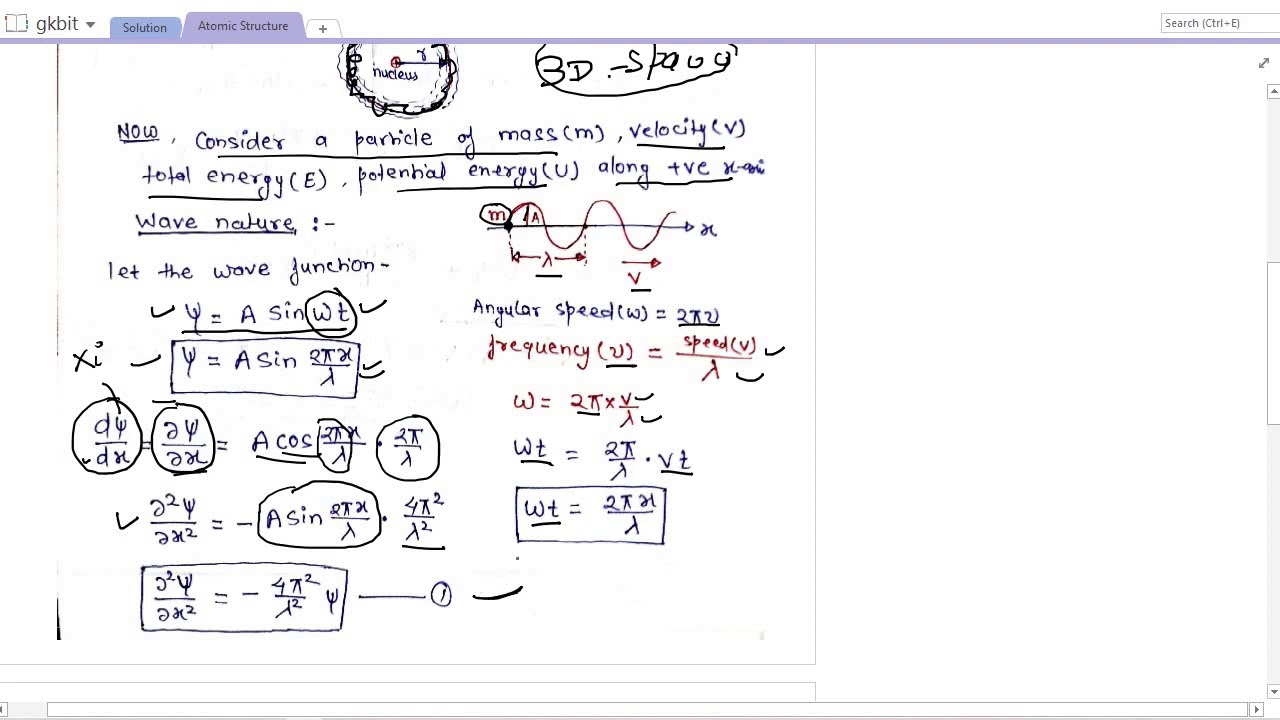 gkbit
Solution
Atomic Structure
Search (Ctrl+E)
r
nucleus
3D - Space
Now, Consider a particle of mass(m), velocity(v)
total energy(E), potential energy(U) along +ve x-axi
Wave nature :-
m
A
x
λ
v
let the wave function-
Ψ = A Sin Wt
Angular speed(w) = 2πν
Xi
Ψ = A Sin 2πx/λ
frequency(ν) = speed(v)/λ
w = 2π × v/λ
dΨ/dx = ∂Ψ/∂x = A cos 2πx/λ · 2π/λ
Wt = 2π/λ · vt
∂²Ψ/∂x² = - A sin 2πx/λ · 4π²/λ²
Wt = 2πx/λ
∂²Ψ/∂x² = - 4π²/λ² Ψ —— ①